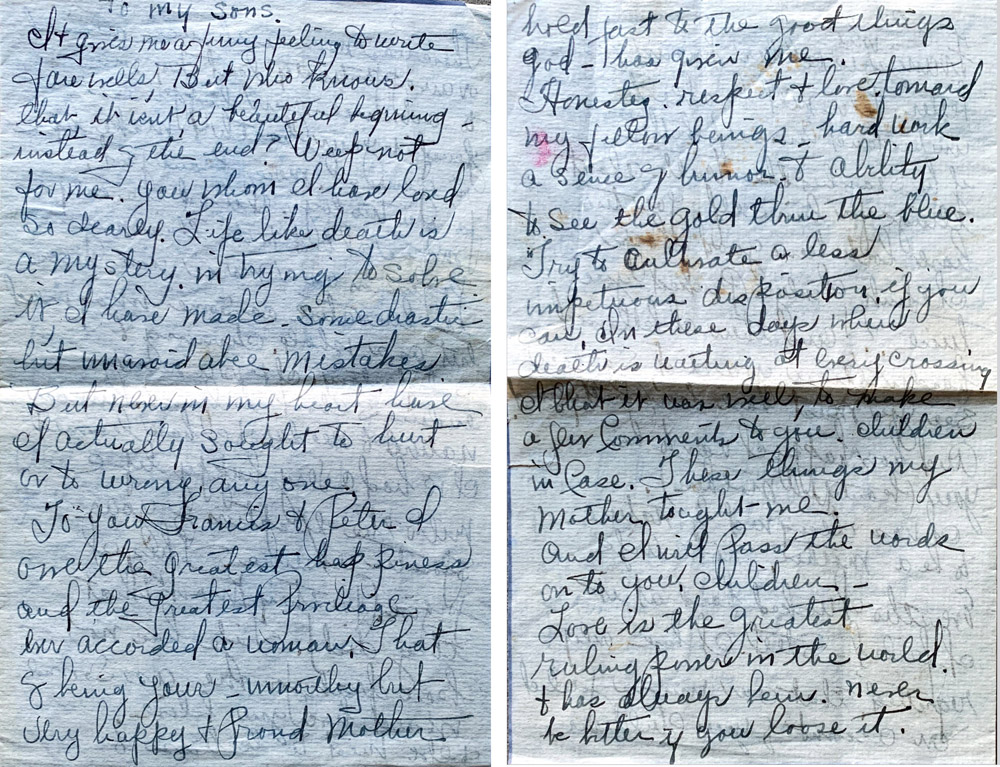 To my Sons.
It gives me a funny feeling to write
farewells, But who knows.
that, it isnt, a beautiful begining -
instead of the end? Weep not
for me. you whom I have loved
so dearly. Life like death is
a mystery. in trying to solve
it I have made - Some drastic
but unavoidable Mistakes
But never in my heart have
I actually sought to hurt
or to wrong any one.
To you Francis & Peter I
owe the greatest happiness
and the greatest privilage
ever accorded a woman. That
of being your - unworthy but
Very happy & Proud Mother
hold fast to the good things
god - has given me.
Honesty. respect & love. toward
my fellow beings - hard work
a sence of humor. & ability
to see the gold thru the blue.
Try to cultivate a less
impetuous disposition, if you
can, In these days when
death is waiting at every crossing
I that it was well, to make
a few Comments to you. children
in Case. These things my
Mother tought - me.
and I will pass the words
on to you, children -
Love is the greatest
ruling power in the world.
& has always been. never
be bitter if you loose it.